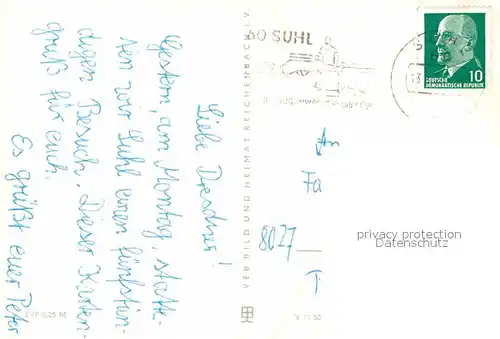 Liebe Dresdner!
Gestern, am Montag, statte-
ten wir Suhl einen fünfstün-
digen Besuch. Dieser Karten-
gruß für euch.
Es grüßt euer Peter
VEB BILD UND HEIMAT REICHENBACH I. V.
60 SUHL
DEUTSCHE
DEMOKRATISCHE REPUBLIK
10
An
Fa
8027
privacy protection
Datenschutz
EVP 0,25 M